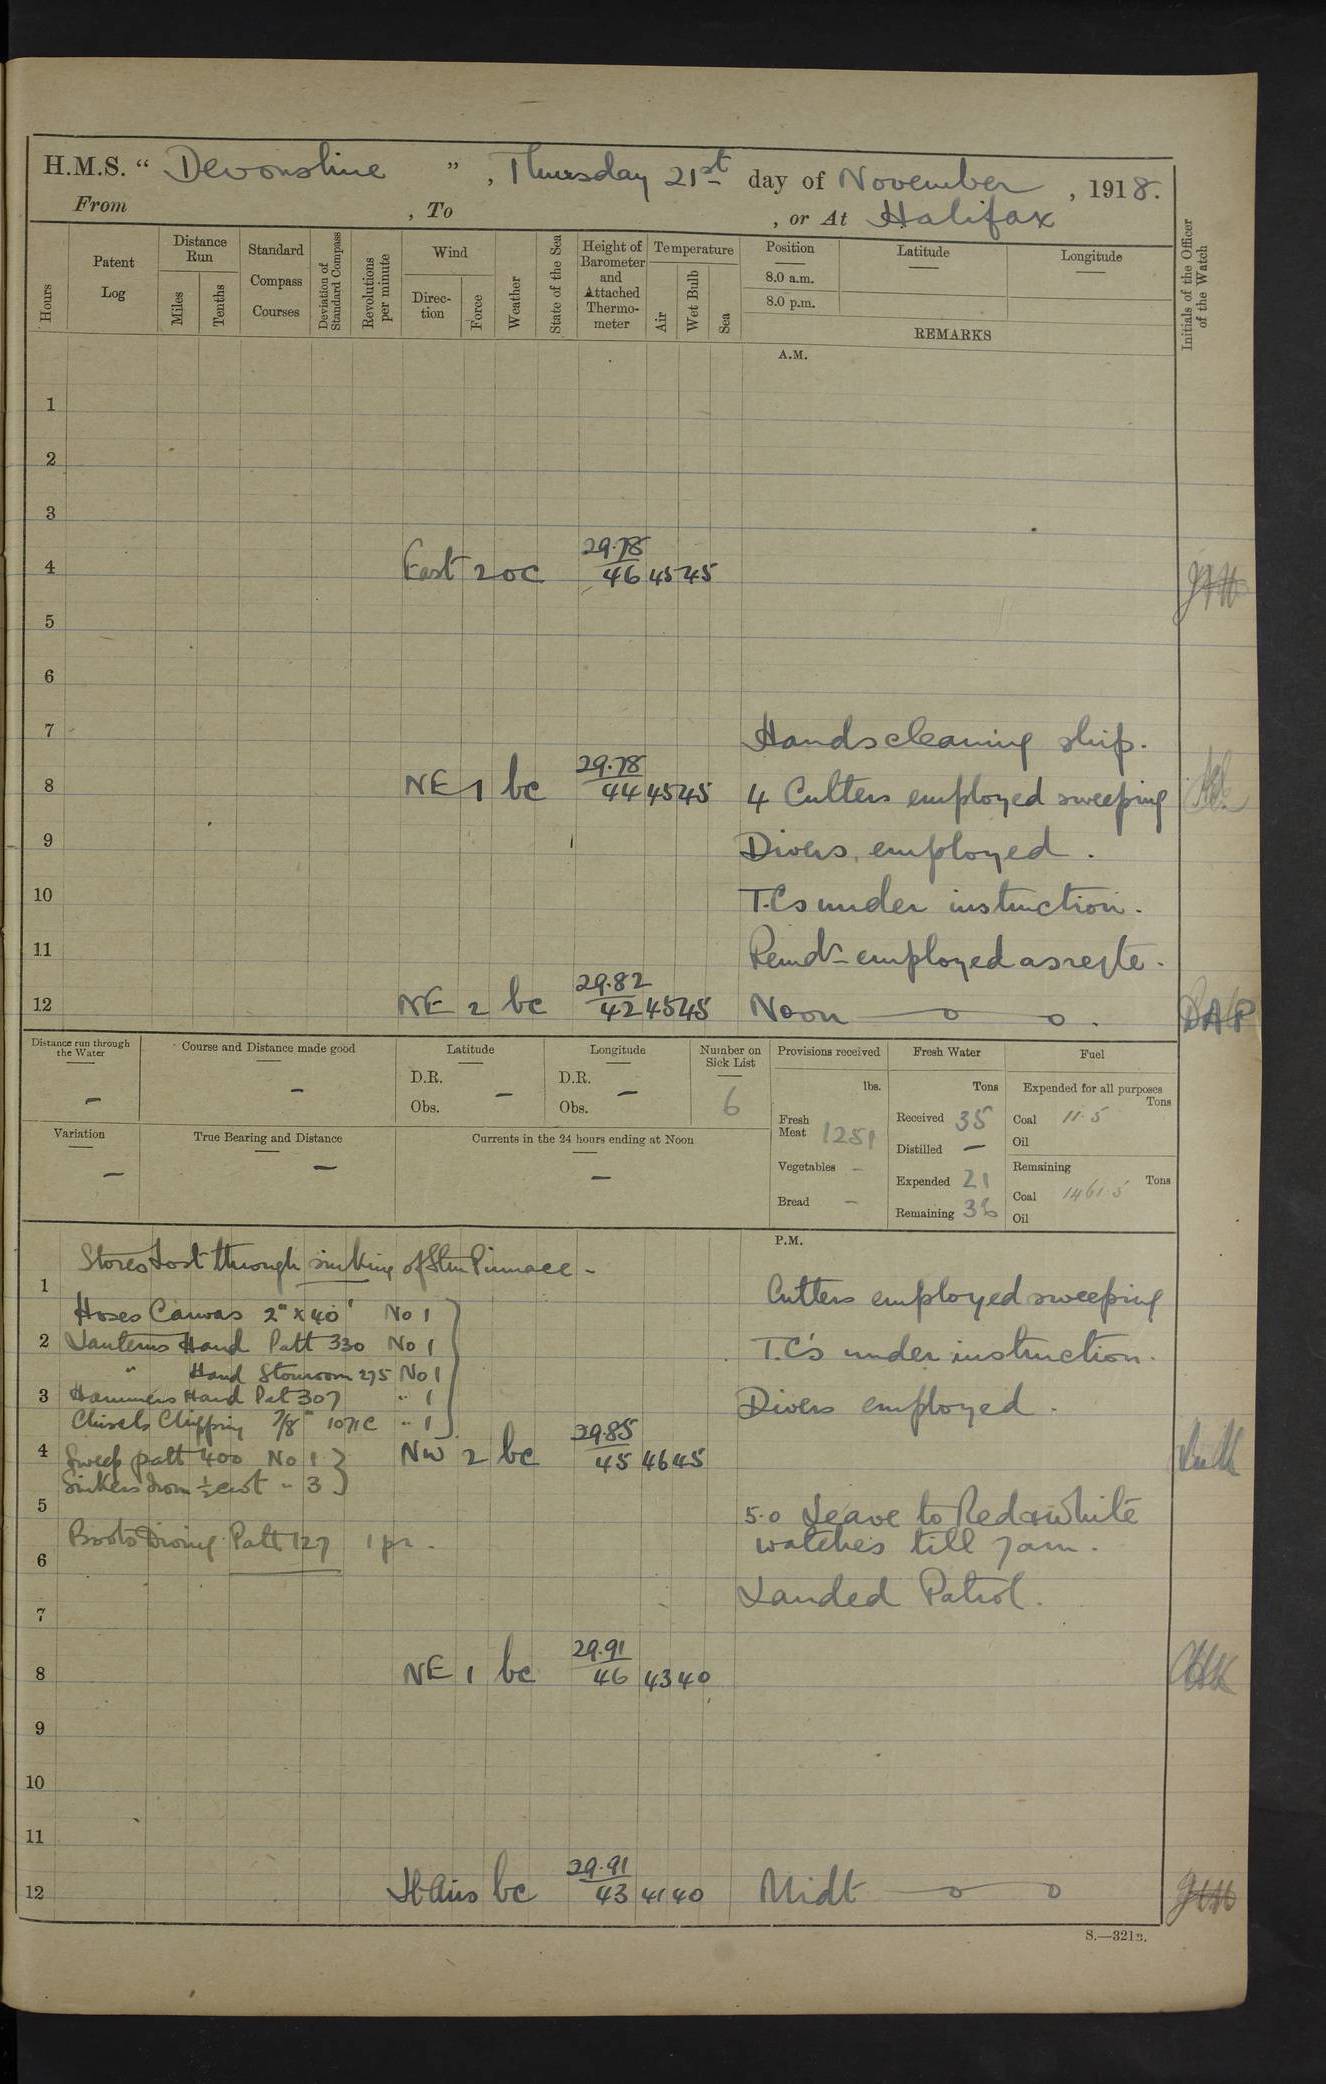 H.M.S. “ Devonshire ” , Thursday 21st day of November , 1918.
From , To , or At Halifax
Hours
Patent Log
Distance Run
Miles
Tenths
Standard Compass Courses
Deviation of Standard Compass
Revolutions per minute
Wind
Direc-tion
Force
Weather
State of the Sea
Height of Barometer and Attached Thermo-meter
Temperature
Air
Wet Bulb
Sea
Position
8.0 a.m.
8.0 p.m.
Latitude
Longitude
REMARKS
Initials of the Officer of the Watch
A.M.
1
2
3
29.78
4 East 2 oc 46 45 45
5
6
7 Hands cleaning ship.
29.78
8 NE 1 bc 44 45 45 4 Cutters employed sweeping
9 Divers employed.
10 T.Cs under instruction.
11 Remdr employed as reqte.
29.82
12 NE 2 bc 42 45 45 Noon DAP
Distance run through the Water –
Course and Distance made good –
Latitude
D.R. –
Obs.
Longitude
D.R. –
Obs.
Number on Sick List
6
Variation –
True Bearing and Distance –
Currents in the 24 hours ending at Noon –
Provisions received
lbs.
Fresh Meat 1251
Vegetables -
Bread -
Fresh Water
Tons
Received 35
Distilled –
Expended 21
Remaining
Fuel
Expended for all purposes
Tons
Coal 11.5
Oil
Remaining
Tons
Coal 1461.5
Oil
P.M.
Stores Lost through sinking of Stm Pinnace -
1 Cutters employed sweeping
Hoses Canvas 2" x 40' No 1
2 Lanterns Hand Patt 330 No 1 T.C's under instruction.
" Hand Storeroom 275 No 1
3 Hammers Hand Pat 307 " 1 Divers employed.
Chisels Chipping 7/8" 1071C " 1
29.85
4 Sweep patt 400 No 1 NW 2 bc 45 46 45
Sinkers Iron ½ cwt " 3
5 5.0 Leave to Red & White
Boots Diving Patt 127 1 pr. watches till 7am.
6
Landed Patrol.
7
29.91
8 NE 1 bc 46 43 40
9
10
11
29.91
12 Lt Airs bc 43 41 40 Midt
S.—321B.